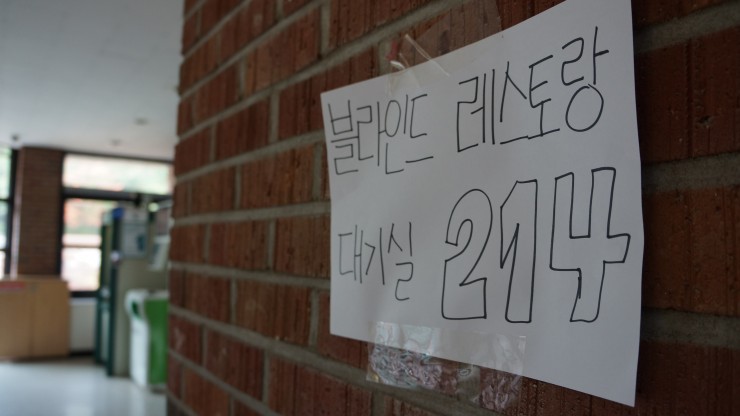 블라인드 레스토랑
대기실 214